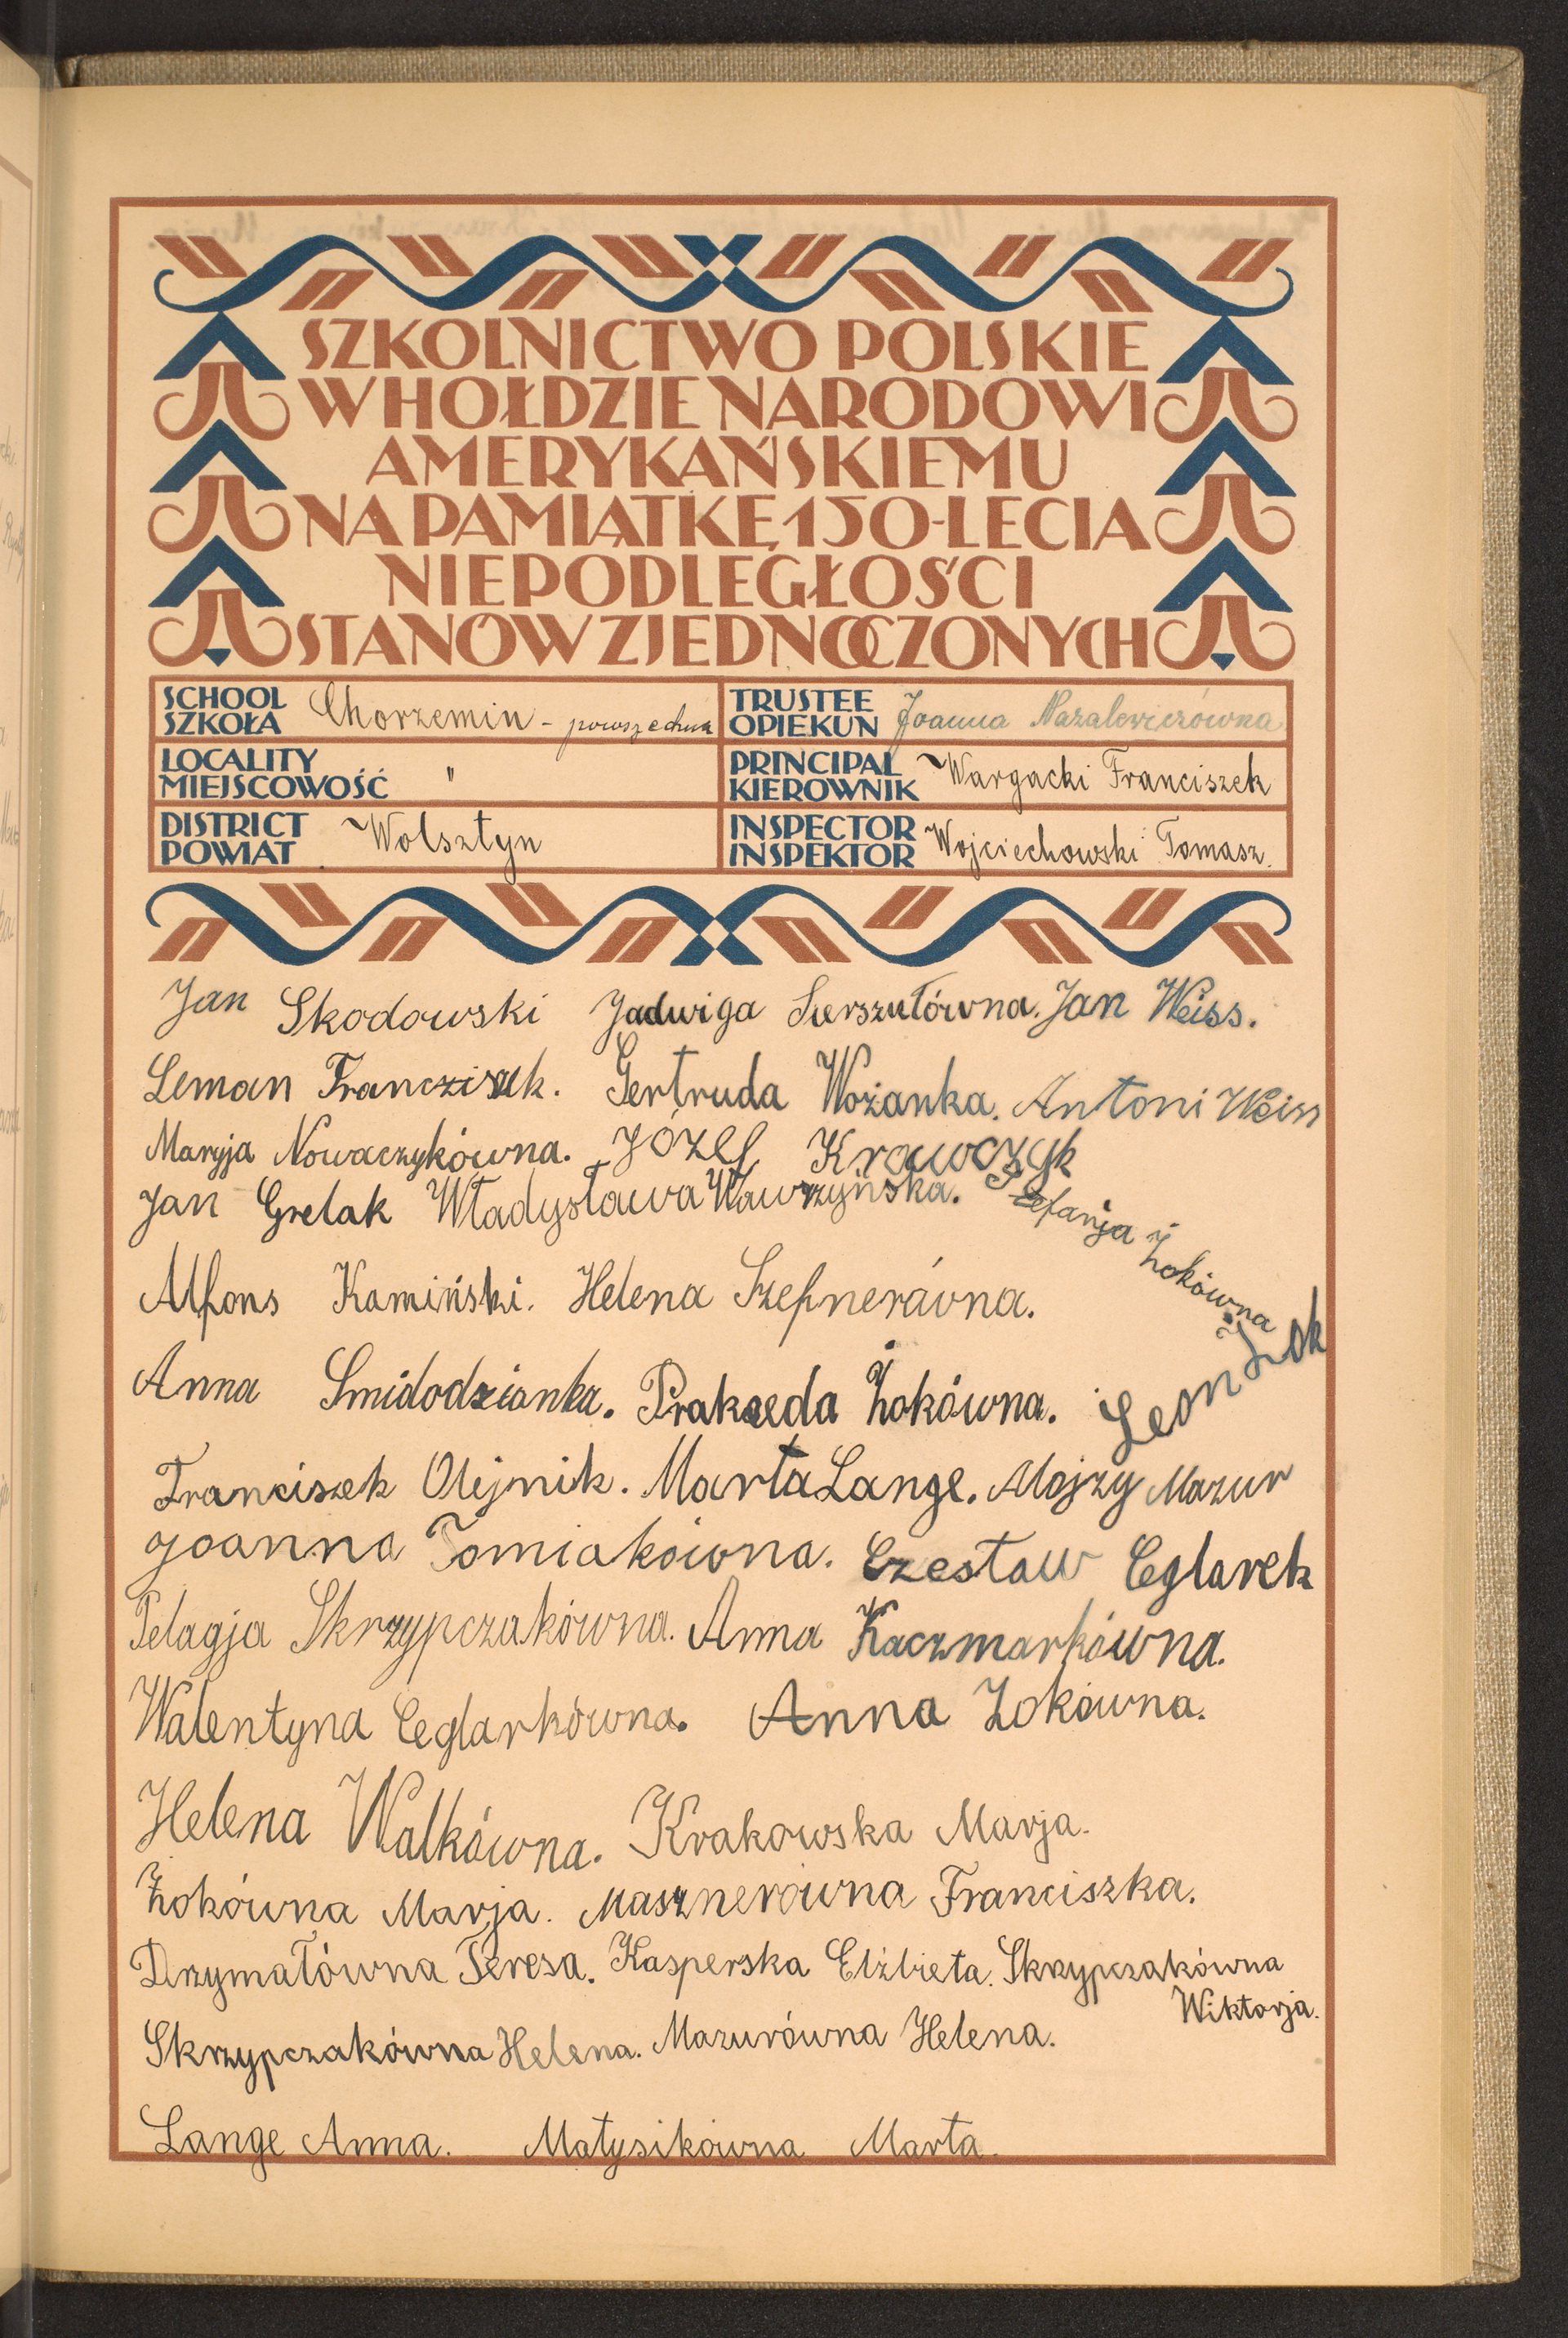 SZKOLNICTWO POLSKIE
W HOŁDZIE NARODOWI
AMERYKAŃSKIEMU
NA PAMIĄTKĘ 150-LECIA
NIEPODLEGŁOŚCI
STANÓW ZJEDNOCZONYCH
SCHOOL
SZKOŁA Chorzemin - powszechna
TRUSTEE
OPIEKUN Joanna Nazalewiczówna
LOCALITY
MIEJSCOWOŚĆ "
PRINCIPAL
KIEROWNIK Wargacki Franciszek
DISTRICT
POWIAT Wolsztyn
INSPECTOR
INSPEKTOR Wojciechowski Tomasz.
Jan Skodowski Jadwiga Sierszułówna. Jan Weiss.
Leman Francziszek. Gertruda Wożanka. Antoni Weiss
Maryja Nowaczykówna. Józef Krawoczyk
Jan Grelak Władysława Wawrzyńska. Stefanja Żokówna
Alfons Kamiński. Helena Szefnerówna.
Anna Smidodzianka. Prakseda Żokówna. Leon Żok
Franciszek Olejnik. Marta Lange. Alojzy Mazur
Joanna Tomiakówna. Czesław Ceglarek
Pelagja Skrzypczakówna. Anna Kaczmarkówna.
Walentyna Ceglarkówna. Anna Żokówna.
Helena Walkówna. Krakowska Marja.
Żokówna Marja. Masznerówna Franciszka.
Drzymałówna Teresa. Kasperska Elżbieta. Skrzypczakówna
Wiktorja.
Skrzypczakówna Helena. Mazurówna Helena.
Lange Anna. Matysikówna Marta.